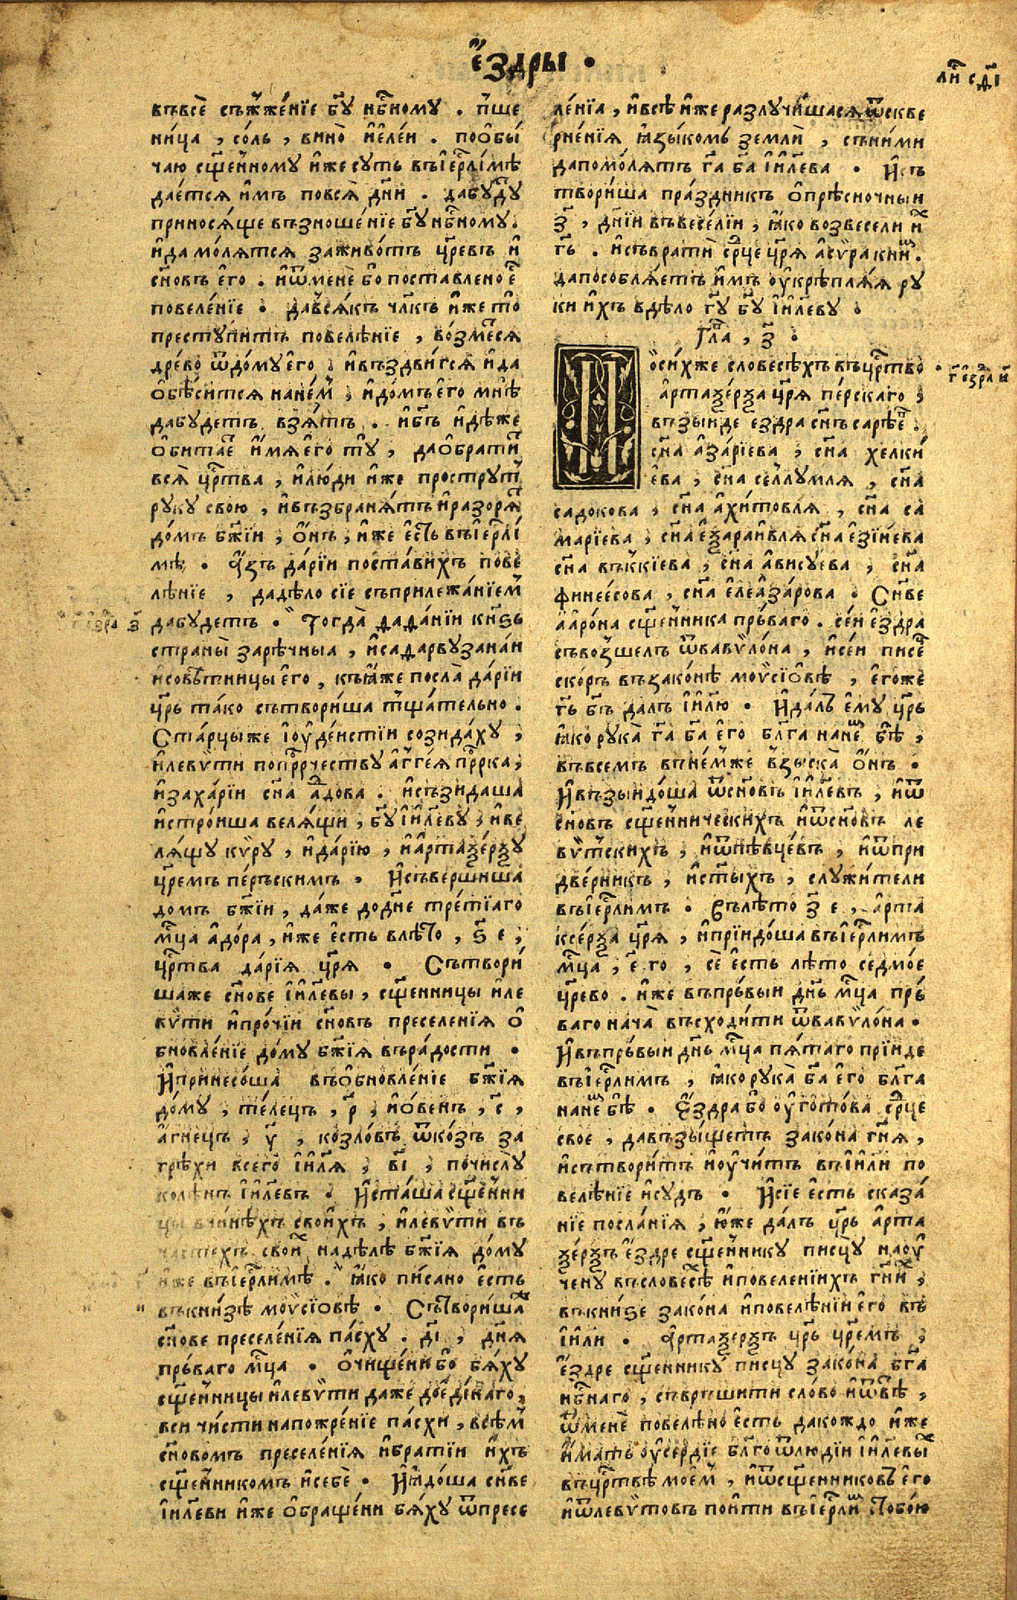 е҆́здры .
въвсѐ съжже́нїе бг҃у нбⷭ҇ному . пше
ница , со́ль , вино̀ и҆е҆ле́и . поѻ҆бы́
чаю сщ҃е́нному и҆́же сꙋть въіе҆рл҃и́мѣ
дае́тся и҆́мъ повсѧ̀ дн҃и . да бꙋдꙋ
приносѧ́ще възноше́нїе бг҃у нбⷭ҇ному .
и҆ да мо́лѧтся заживо́тъ цр҃е́въ и҆
сн҃о́въ е҆го̀ . и҆ѿменѐ бо поставлено е҆
повеле́нїе . давсѧ́къ чл҃къ и҆́же то̀
престꙋ́питъ повеле́нїе , во́змеся
дре́во ѿдо́мꙋ е҆го̀ , и҆въздви́гся и҆ да
ѻ҆бѣ́сится нане́м , и҆до́мъ е҆го̀ мнѣ̀
да бꙋ́детъ взѧ́тъ . и҆бг҃ъ и҆дѣ́же
ѻ҆бита́е и҆́мѧ е҆го̀ тꙋ̀ , да ѻ҆брати́
всѧ̀ црⷭ҇тва , и҆лю́ди и҆́же прострꙋт
рꙋкꙋ свою̀ , и҆възбранѧ́тъ и҆разорѧ́
до́мъ бж҃їи , ѻ҆́нъ , и҆́же е҆́сть въіе҆рл҃и́
мѣ . а҆́зъ да́рїи поста́вихъ пове
лѣ́нїе , да дѣ́ло сїѐ съприлежа́нїем
да бꙋ́детъ . Тогда̀ дада́нїи кнѕ҃ь
страны̀ зарѣ́чныѧ , и҆садарвꙋзана́и
и҆совѣ́тницы е҆го̀ , къи҆̀мже посла̀ да́рїи
цр҃ь та́ко сътвори́ша тща́тельно .
Ста́рцы же і҆оу҆де́истїи созида́хꙋ ,
и҆леѵ́ѵти попрⷪ҇рчествꙋ а҆гге́ѧ прⷪ҇рка ,
и҆заха́рїи сн҃а а҆́дова . и҆съзида́ша
и҆строи́ша велѧ́щи , бг҃у і҆и҃левꙋ , и҆ве
лѧ́щꙋ кѵ́рꙋ , и҆да́рїю , и҆а҆ртаѯе́рѯꙋ
цр҃е́мъ пе́рьскимъ , И҆съверши́ша
до́мъ бж҃їи , да́же додн҃е тре́тїаго
мцⷭ҇а а҆до́ра , и҆́же е҆́сть влѣ́то , ѕ҃ е ,
црⷭ҇тва да́рїѧ цр҃ѧ . Сътвори́
шаже сн҃ове і҆и҃левы , сщ҃е́нницы и҆ле
ѵ́ѵти и҆про́чїи сн҃о́въ преселе́нїѧ ѻ҆
бновле́нїе до́мꙋ бж҃їѧ въра́дости .
И҆принесо́ша въѻ҆бновле́нїе бж҃їѧ
до́мꙋ , те́лець , р҃ , и҆о́венъ , с҃ ,
а҆́гнець , у҃ , козло́въ ѿко́зъ за
грѣхѝ всего̀ і҆и҃лѧ , в҃і , почислꙋ
колѣ́нъ і҆и҃левъ . И҆ста́ша сщ҃е́нни
цы вчинѣ́хъ свои́хъ , и҆леѵ́ѵти въ
частехъ свои҆́ наддѣлѣ̀ бж҃їѧ до́мꙋ
и҆́же въіе҆рл҃и́мѣ . ꙗ҆́ко пи́сано е҆́сть
въкни́зѣ моѵсїо́вѣ . Сътвори́шаж
сн҃ове преселе́нїѧ па́схꙋ . д҃і , дн҃ѧ
пръ́ваго мцⷭ҇а . Ѻ҆чище́ни бо бѧ́хꙋ
сщ҃е́нницы и҆леѵ́ѵти да́же доеди́наго ,
вси чи́сти напожре́нїе па́схи , всѣ́м
сн҃о́вомъ преселе́нїѧ и҆бра́тїи и҆́хъ
сщ҃е́нникомъ и҆себѐ . И҆ꙗ҆до́ша сн҃ве
і҆и҃леви и҆́же ѻ҆браще́ни бѧ́хꙋ ѿпресе
ле́нїа , и҆всѝ и҆́же разлꙋчи́шася ѿскве
рне́нїѧ ꙗ҆зы́комъ землѝ , съни́ми
да помо́лѧтъ гⷭ҇а ба҃ і҆и҃лева . И҆съ
твори́ша пра́здникъ ѻ҆прѣ́сночныи
з҃ , дн҃їи въвесе́лїи , ꙗ҆́ко возвесели и҆х
гⷭ҇ь . и҆съвратѝ срⷣце цр҃ѧ а҆сѵ́ра кни́м .
да пособлѧ́етъ и҆́мъ оу҆крѣплѧ́ѧ рꙋ
ки и҆́хъ вдѣ́ло гⷭ҇у бг҃у і҆и҃левꙋ .
Глⷡ҇а , з҃ .
По си́хже словесѣ́хъ въцрⷭ҇тво
а҆ртаѯе́рѯа цр҃ѧ пе́рскаго ,
възы́иде е҆здра сн҃ъ саре́е .
сн҃а а҆за́рїева , сн҃а хелкі́
ева , сн҃а селлꙋ́млѧ , сн҃а
садокова , сн҃а а҆хи́товлѧ , сн҃а са
марїева , сн҃а е҆ѯараи́влѧ сн҃а е҆зі́иева
сн҃а въккїева , сн҃а а҆висꙋева , сн҃а
финее́сова , сн҃а е҆леа҆за́рова . Сн҃ве
а҆аро́на сщ҃е́нника пръ́ваго . се́и е҆́здра
съвозше́лъ ѿвавѵло́на , и҆се́и писе́
ско́ръ въ зако́нѣ моѵсїо́вѣ , е҆го́же
гⷭ҇ь бг҃ъ да́лъ і҆и҃лю . И҆да́лъ е҆мꙋ̀ цр҃ь
ꙗ҆́ко рꙋка̀ гⷭ҇а ба҃ е҆го̀ бл҃га нане́м бѣ̀ ,
въвсе́мъ въне́мже взыска̀ ѻ҆́нъ .
И҆възыидо́ша ѿсн҃о́въ і҆и҃левъ , и҆ѿ
сн҃о́въ сщ҃е́ннических и҆ѿсн҃о́въ ле
ѵ́ѵтских , и҆ѿпѣвце́въ , и҆ѿпри
две́рникъ , и҆ст҃ы́хъ , слꙋжи́тели
въіе҆рл҃и́мъ . Въ лѣ́то з҃ е , а҆рта
ксе́рѯа цр҃ѧ , и҆прїидо́ша въіе҆рл҃и́мъ
мцⷭ҇а , е҃ го , сѐ е҆́сть лѣ́то седмо́е
цр҃ево . и҆́же въпръ́выи дн҃ь мцⷭ҇а пръ́
ваго нача̀ въсходи́ти ѿвавѵло́на .
И҆въпръ́выи дн҃ь мцⷭ҇а пѧ́таго прїи́де
въіе҆рл҃и́мъ , ꙗ҆́ко рꙋка̀ ба҃ е҆го̀ бл҃га
нане́м бѣ̀ . Е҆́здра бо оу҆гото́ва срⷣце
свое , да възы́щетъ зако́на гнⷭ҇ѧ ,
и҆сътвори́тъ и҆оу҆чи́тъ въі҆и҃ли по
велѣ́нїе и҆сꙋдъ . И҆сїѐ е҆́сть сказа́
нїе посла́нїѧ , ю҆́же да́лъ цр҃ь а҆рта
ѯе́рѯъ е҆́здре сщ҃е́нникꙋ писцꙋ̀ наоу҆
че́нꙋ въсловесѣ̀ и҆повеле́нїихъ гнⷭ҇и ,
въкни́ѕе зако́на и҆повелѣ́нїи е҆го̀ въ
і҆и҃ли . А҆ртаѯе́рѯъ цр҃ь цр҃е́мъ ,
е҆́здре сщ҃е́нникꙋ̀ писцꙋ̀ зако́на бг҃а
нбⷭ҇наго , съвръши́ти сло́во и҆ѿвѣ̀ ,
ѿменѐ повелѣно е҆́сть да ко́ждо и҆́же
и҆́мать оу҆се́рдїе бл҃го ѿлюдїи і҆и҃левых
въцрⷭ҇твѣ мое́м , и҆ѿсщ҃е́нниковъ е҆го̀
и҆ѿлеѵ́ѵтовъ поити въіе҆рл҃и́м стобо́ю